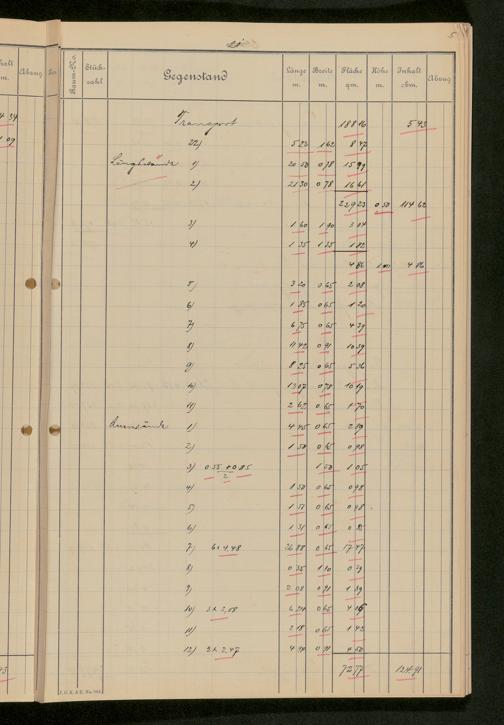 5
halt
m.
Abzug
4 34
1 09
Raum-No.
Stückzahl
Gegenstand
Länge m.
Breite m.
Fläche qm.
Höhe m.
Inhalt cbm.
Abzug
Transport 188 16 5 43
22) 5 23 1 62 8 47
Längswände 1) 20 50 0 78 15 99
2) 21 30 0 78 16 61
229 23 0 50 114 62
3) 1 60 1 90 3 04
4) 1 35 1 35 1 82
4 86 1 00 4 86
5) 3 20 0 65 2 08
6) 1 85 0 65 1 20
7) 6 75 0 65 4 39
8) 11 42 0 91 10 39
9) 8 25 0 65 5 36
10) 13 07 0 78 10 19
11) 2 62 0 65 1 70
Querwände 1) 4 45 0 65 2 89
2) 1 50 0 65 0 98
3) 0.55 + 0.85 / 2 1 50 1 05
4) 1 50 0 65 0 98
5) 1 51 0 65 0 98
6) 1 31 0 65 0 85
7) 6 x 4,48 26 88 0 65 17 47
8) 0 35 1 10 0 39
9) 2 08 0 91 1 89
10) 3 x 2,08 6 24 0 65 4 06
11) 2 18 0 65 1 42
12) 2 x 2,47 4 94 0 91 4 50
72 77 124 91